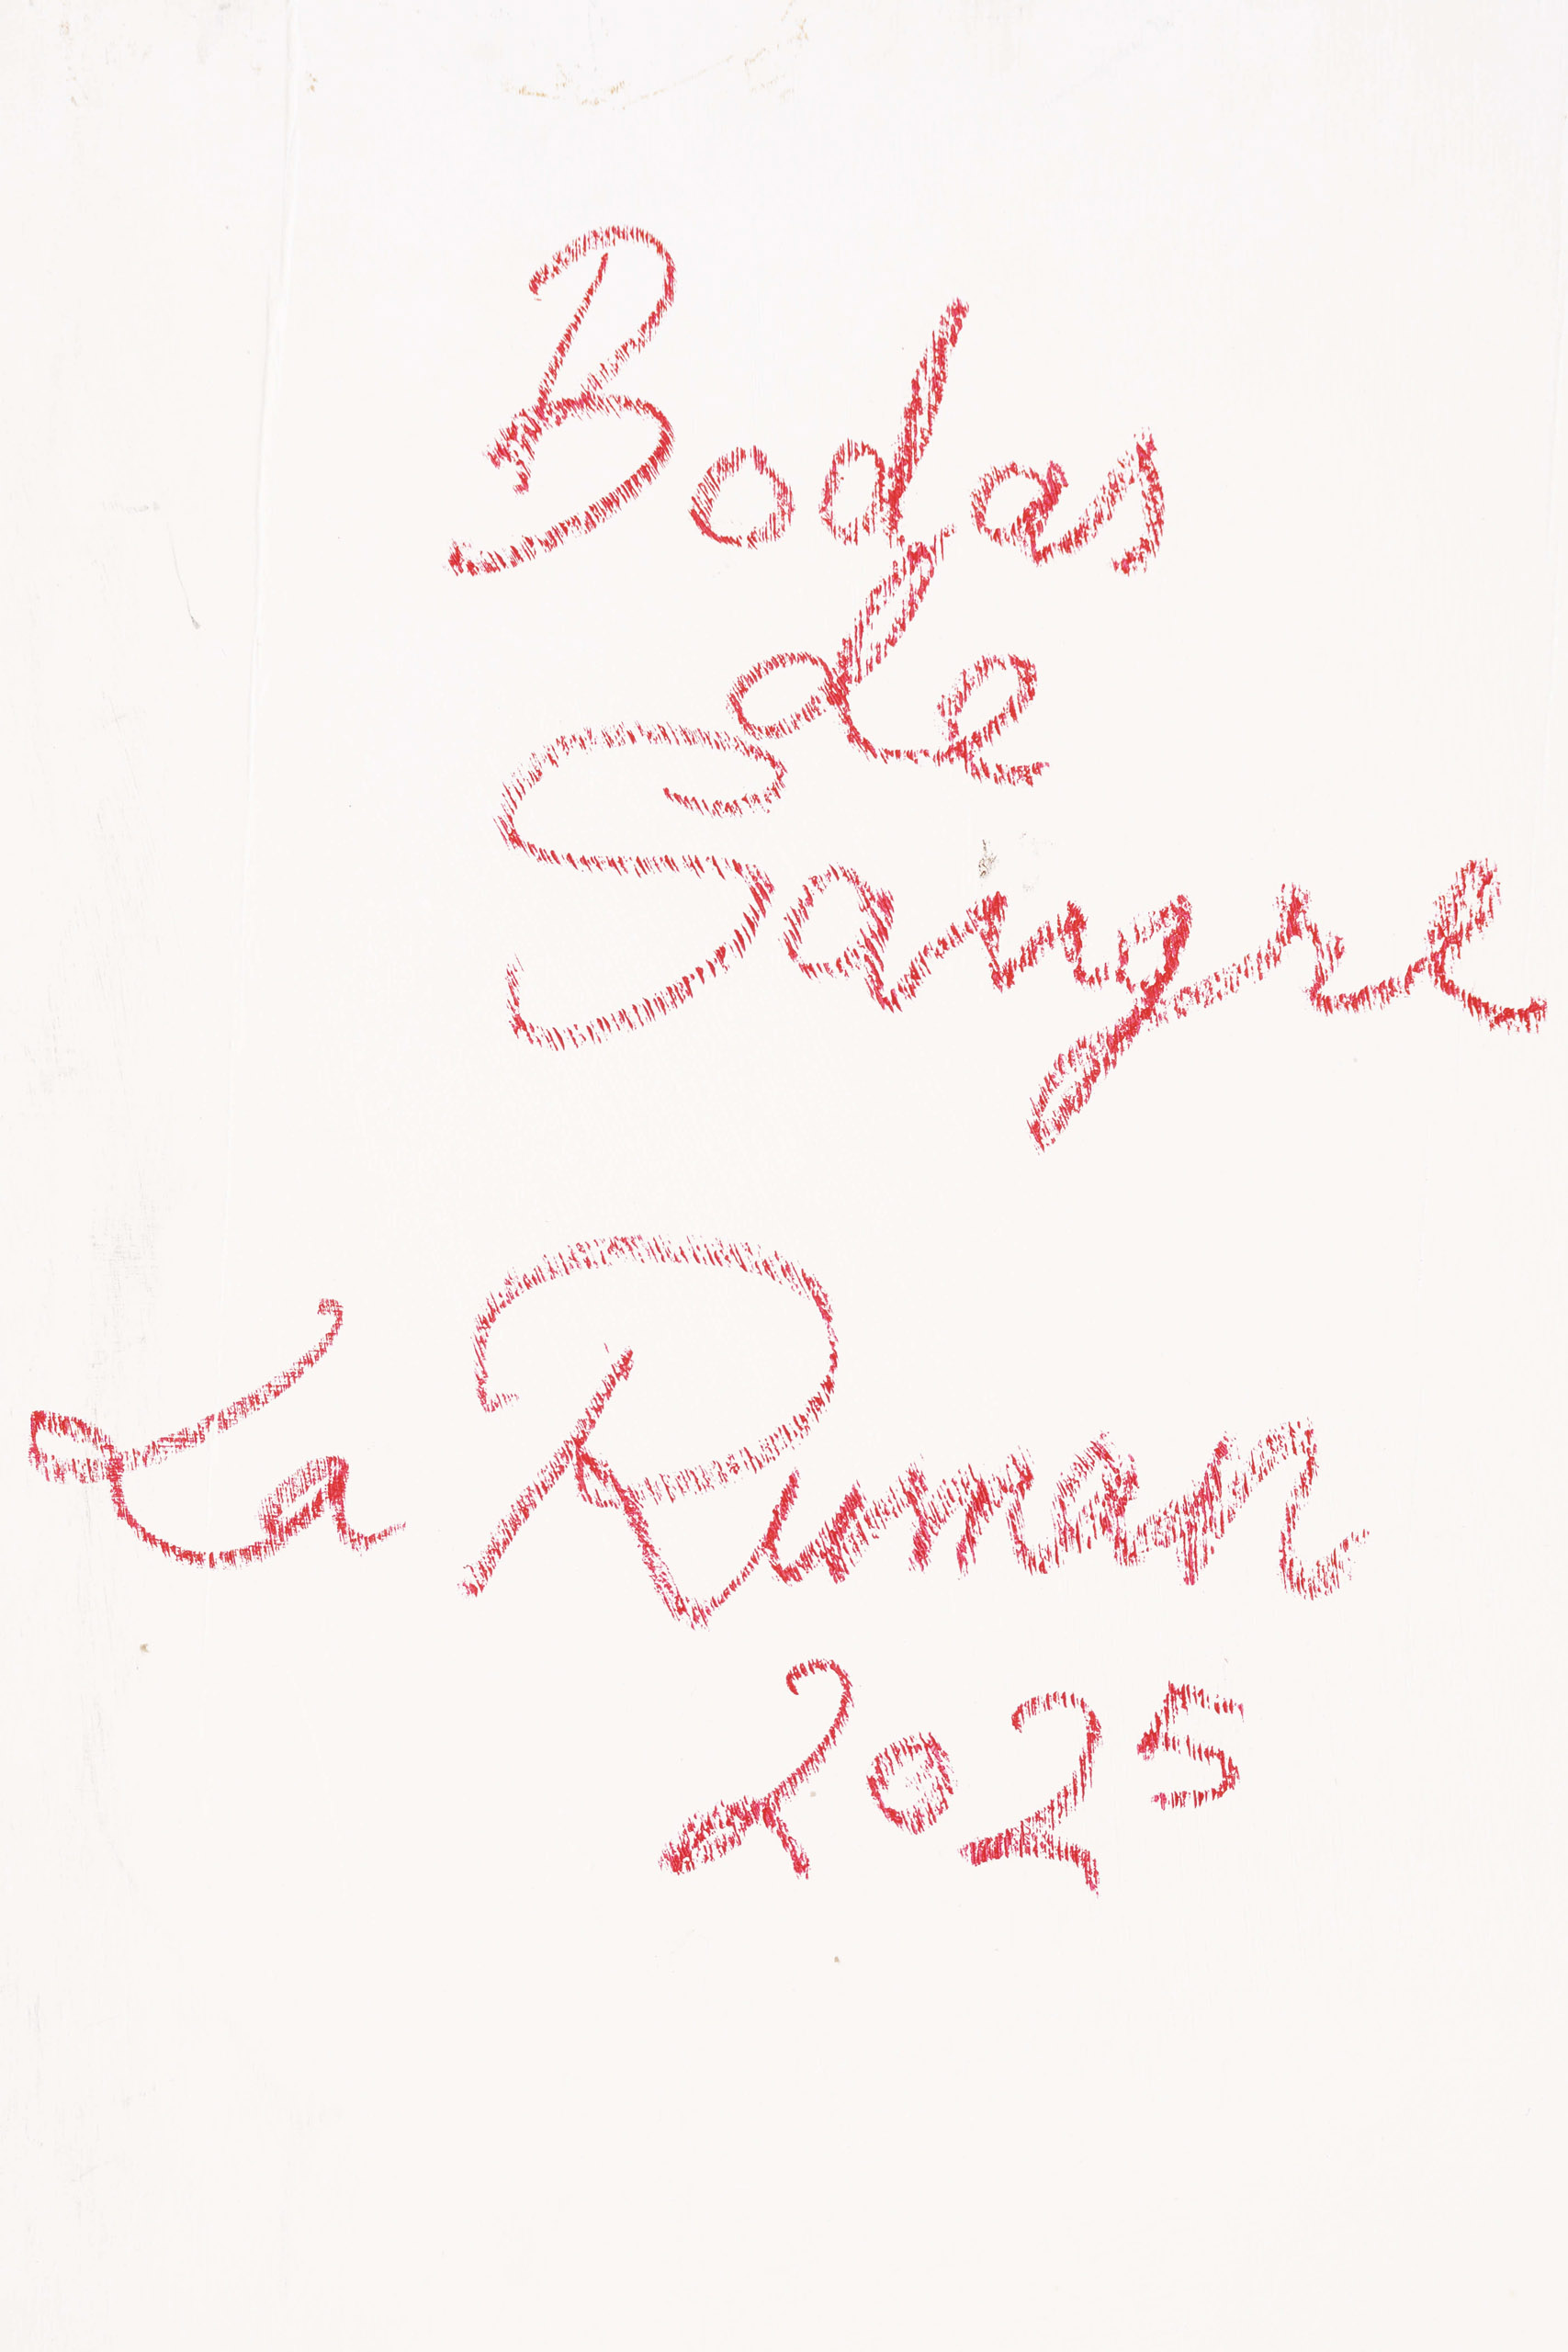 Bodas
de
Sangre
La Ruman
2025